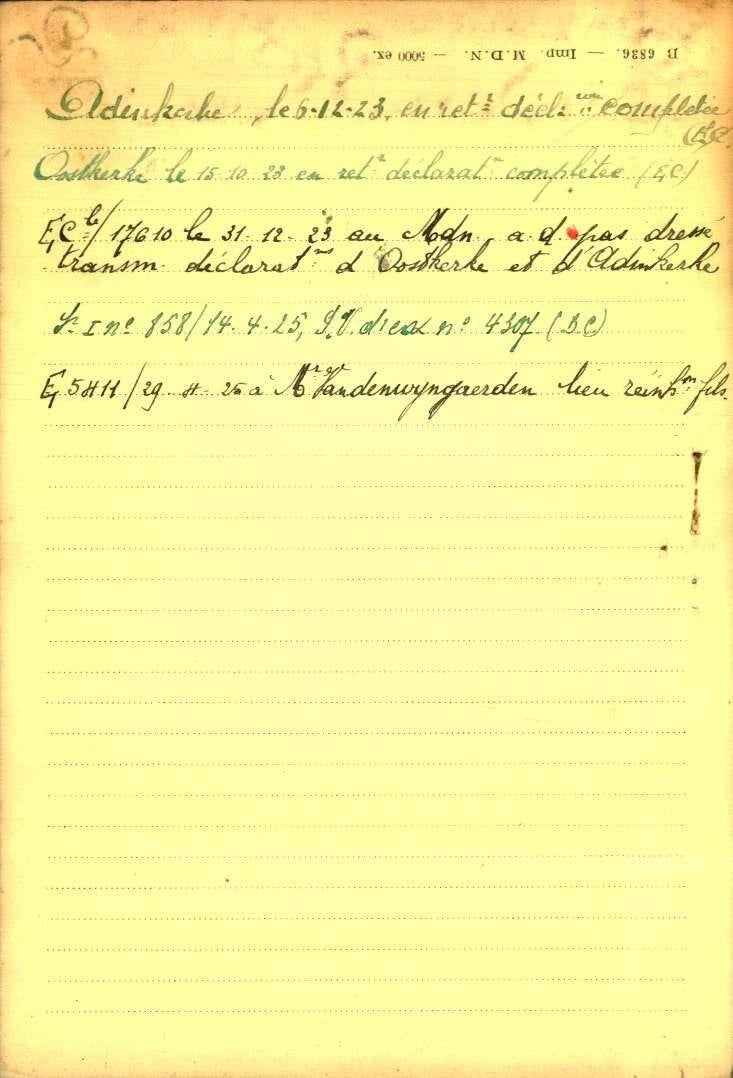 B 6836. — Imp. M.D.N. — 5000 ex.
Adinkerke, le 6-12-23, en ret^r décl: ^ion complétée
(E,C.
Oostkerke le 15 10 23 en ret^r déclarat^n complétée (E,C)
E,C^b/17610 le 31-12-23 au Mdn, a d pas dressé
transm déclarat^ns d'Oostkerke et d'Adinkerke
S^r I n° 858/14.4.25, n° 4307 (B.C)
E, 5411/29-4-25 à M^r Vandenwyngaerden lieu fils.